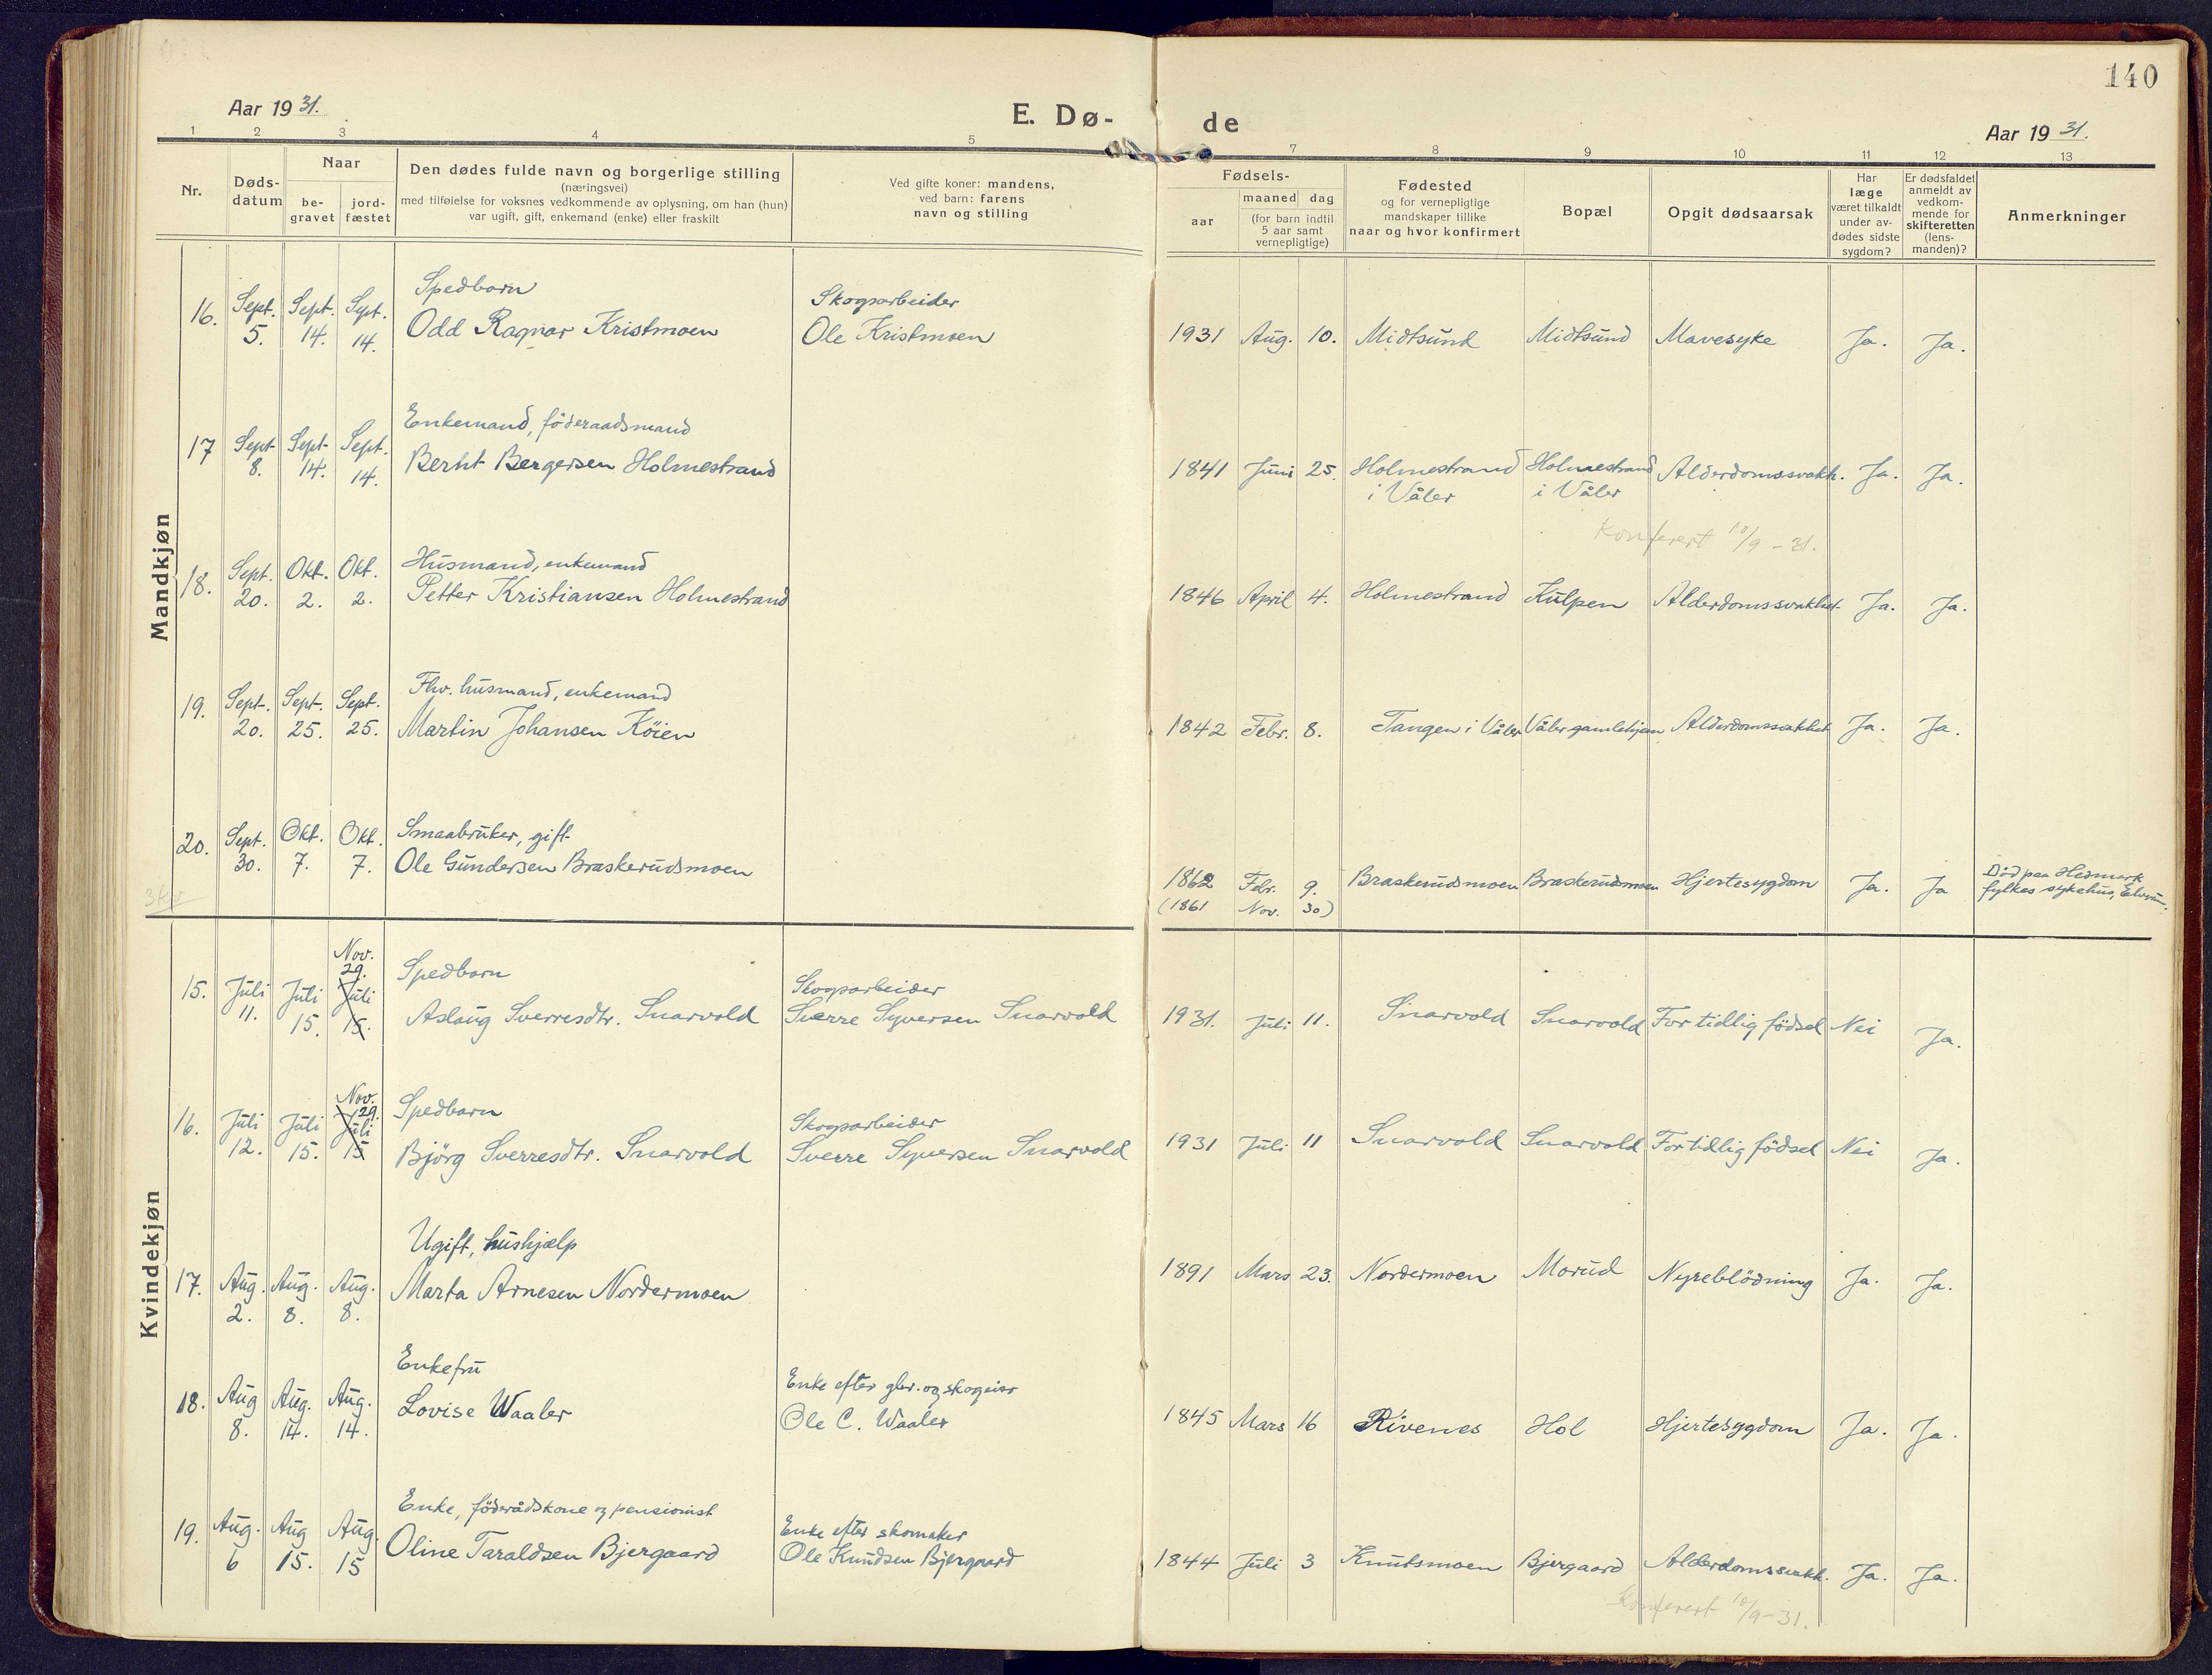 140
Aar 1931.
E. Dø-
de
Aar 1931.
1 2 3 4 5 7 8 9 10 11 12 13
Nr.
Døds-
datum
Naar
be-
gravet
jord-
fæstet
Den dødes fulde navn og borgerlige stilling
(næringsvei)
med tilføielse for voksnes vedkommende av oplysning, om han (hun)
var ugift, gift, enkemand (enke) eller fraskilt
Ved gifte koner: mandens,
ved barn: farens
navn og stilling
Fødsels-
aar
maaned dag
(for barn indtil
5 aar samt
vernepligtige)
Fødested
og for vernepligtige
mandskaper tillike
naar og hvor konfirmert
Bopæl
Opgit dødsaarsak
Har
læge
været tilkaldt
under av-
dødes sidste
sygdom?
Er dødsfaldet
anmeldt av
vedkom-
mende for
skifteretten
(lens-
manden)?
Anmerkninger
Mandkjøn
Spedbarn Skogsarbeider
16. Sept. 5. Sept. 14. Sept. 14. Odd Ragnar Kristmoen Ole Kristmoen 1931 Aug. 10. Midtsund Midtsund Mavesyke Ja. Ja.
Enkemand, föderaadsmand
17 Sept 8. Sept. 14. Sept. 14. Bernt Bergersen Holmestrand 1841 Juni 25. Holmestrand Holmestrand Alderdomssvakh. Ja. Ja.
i Våler i Våler
Konferert 10/9 - 31.
Husmand, enkemand
18. Sept. 20. Okt. 2. Okt. 2. Petter Kristiansen Holmestrand 1846 April 4. Holmestrand Kulpen Alderdomssvakhet Ja. Ja.
Fhv. husmand, enkemand
19. Sept. 20. Sept. 25. Sept. 25. Martin Johansen Köien 1842 Febr. 8. Tangen i Våler Våler gamlehjem Alderdomssvakhet Ja. Ja.
Smaabruker, gift
20. Sept. 30. Okt. 7. Okt. 7. Ole Gundersen Braskerudsmoen 1862 Febr. 9. Braskerudsmoen Braskerudsmoen Hjertesygdom Ja. Ja Död paa Hedmark
(1861 Nov. 30) fylkes sykehus, Elverum.
Kvindekjøn
Nov. 29.
Spedbarn Skogsarbeider
15. Juli 11. Juli 15. Juli 15. Aslaug Sverresdtr. Snarvold Sverre Syversen Snarvold 1931. Juli 11. Snarvold Snarvold For tidlig födsel Nei Ja.
Nov. 29.
Spedbarn Skogsarbeider
16. Juli 12. Juli 15. Juli 15 Björg Sverresdtr. Snarvold Sverre Syversen Snarvold 1931 Juli 11 Snarvold Snarvold For tidlig födsel Nei Ja.
Ugift, hushjælp
17. Aug. 2. Aug. 8. Aug. 8. Marta Arnesen Nordermoen 1891 Mars 23. Nordermoen Morud Nyreblödning Ja. Ja.
Enkefru Enke efter gbr. og skogeier
18. Aug 8. Aug. 14. Aug. 14. Lovise Waaler Ole C. Waaler 1845 Mars 16 Rivenes Hol Hjertesygdom Ja. Ja.
Enke, föderådskone og pensionist Enke efter skomaker
19. Aug. 6 Aug 15. Aug. 15 Oline Taraldsen Bjergaard Ole Knudsen Bjergaard 1844 Juli 3 Knutsmoen Bjergaard Alderdomssvakh. Ja. Ja.
Konferert 10/9-31.